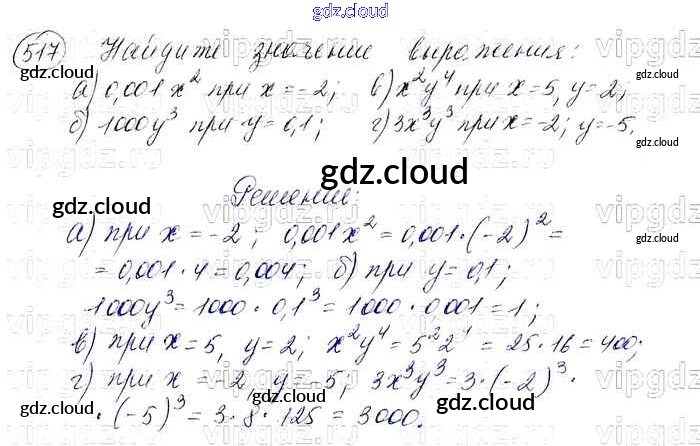 gdz.cloud
517 Найдите значение выражения:
а) 0,001x² при x = -2; в) x²y⁴ при x = 5, y = 2;
б) 1000y³ при y = 0,1; г) 3x³y³ при x = -2; y = -5.
gdz.cloud
Решение:
gdz.cloud
gdz.cloud
а) при x = -2; 0,001x² = 0,001·(-2)² =
= 0,001·4 = 0,004; б) при y = 0,1;
1000y³ = 1000·0,1³ = 1000·0,001 = 1;
в) при x = 5, y = 2; x²y⁴ = 5²2⁴ = 25·16 = 400;
г) при x = -2, y = -5; 3x³y³ = 3·(-2)³·
·(-5)³ = 3·8·125 = 3000.
gdz.cloud
gdz.cloud